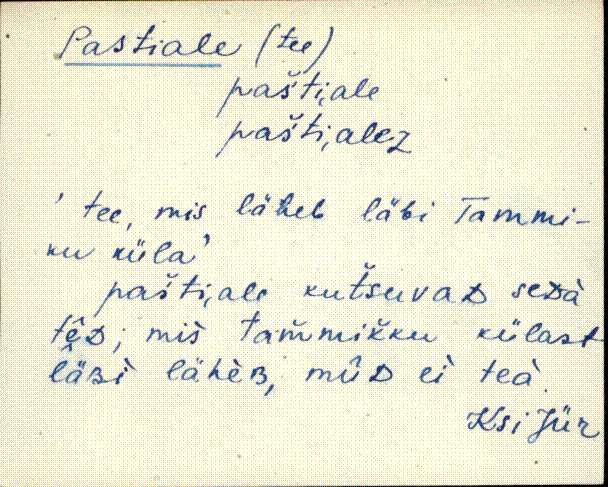 Pastiale (tee)
pašti,ale
pašti,alez
' tee, mis läheb läbi Tammi-
ku küla'
pašti,ale kut̆suvaD seDà
tê̬D, mis̀ tam̆mik̆ku külast
läʙì lähèʙ, mûD ei teà
Ksi Jür